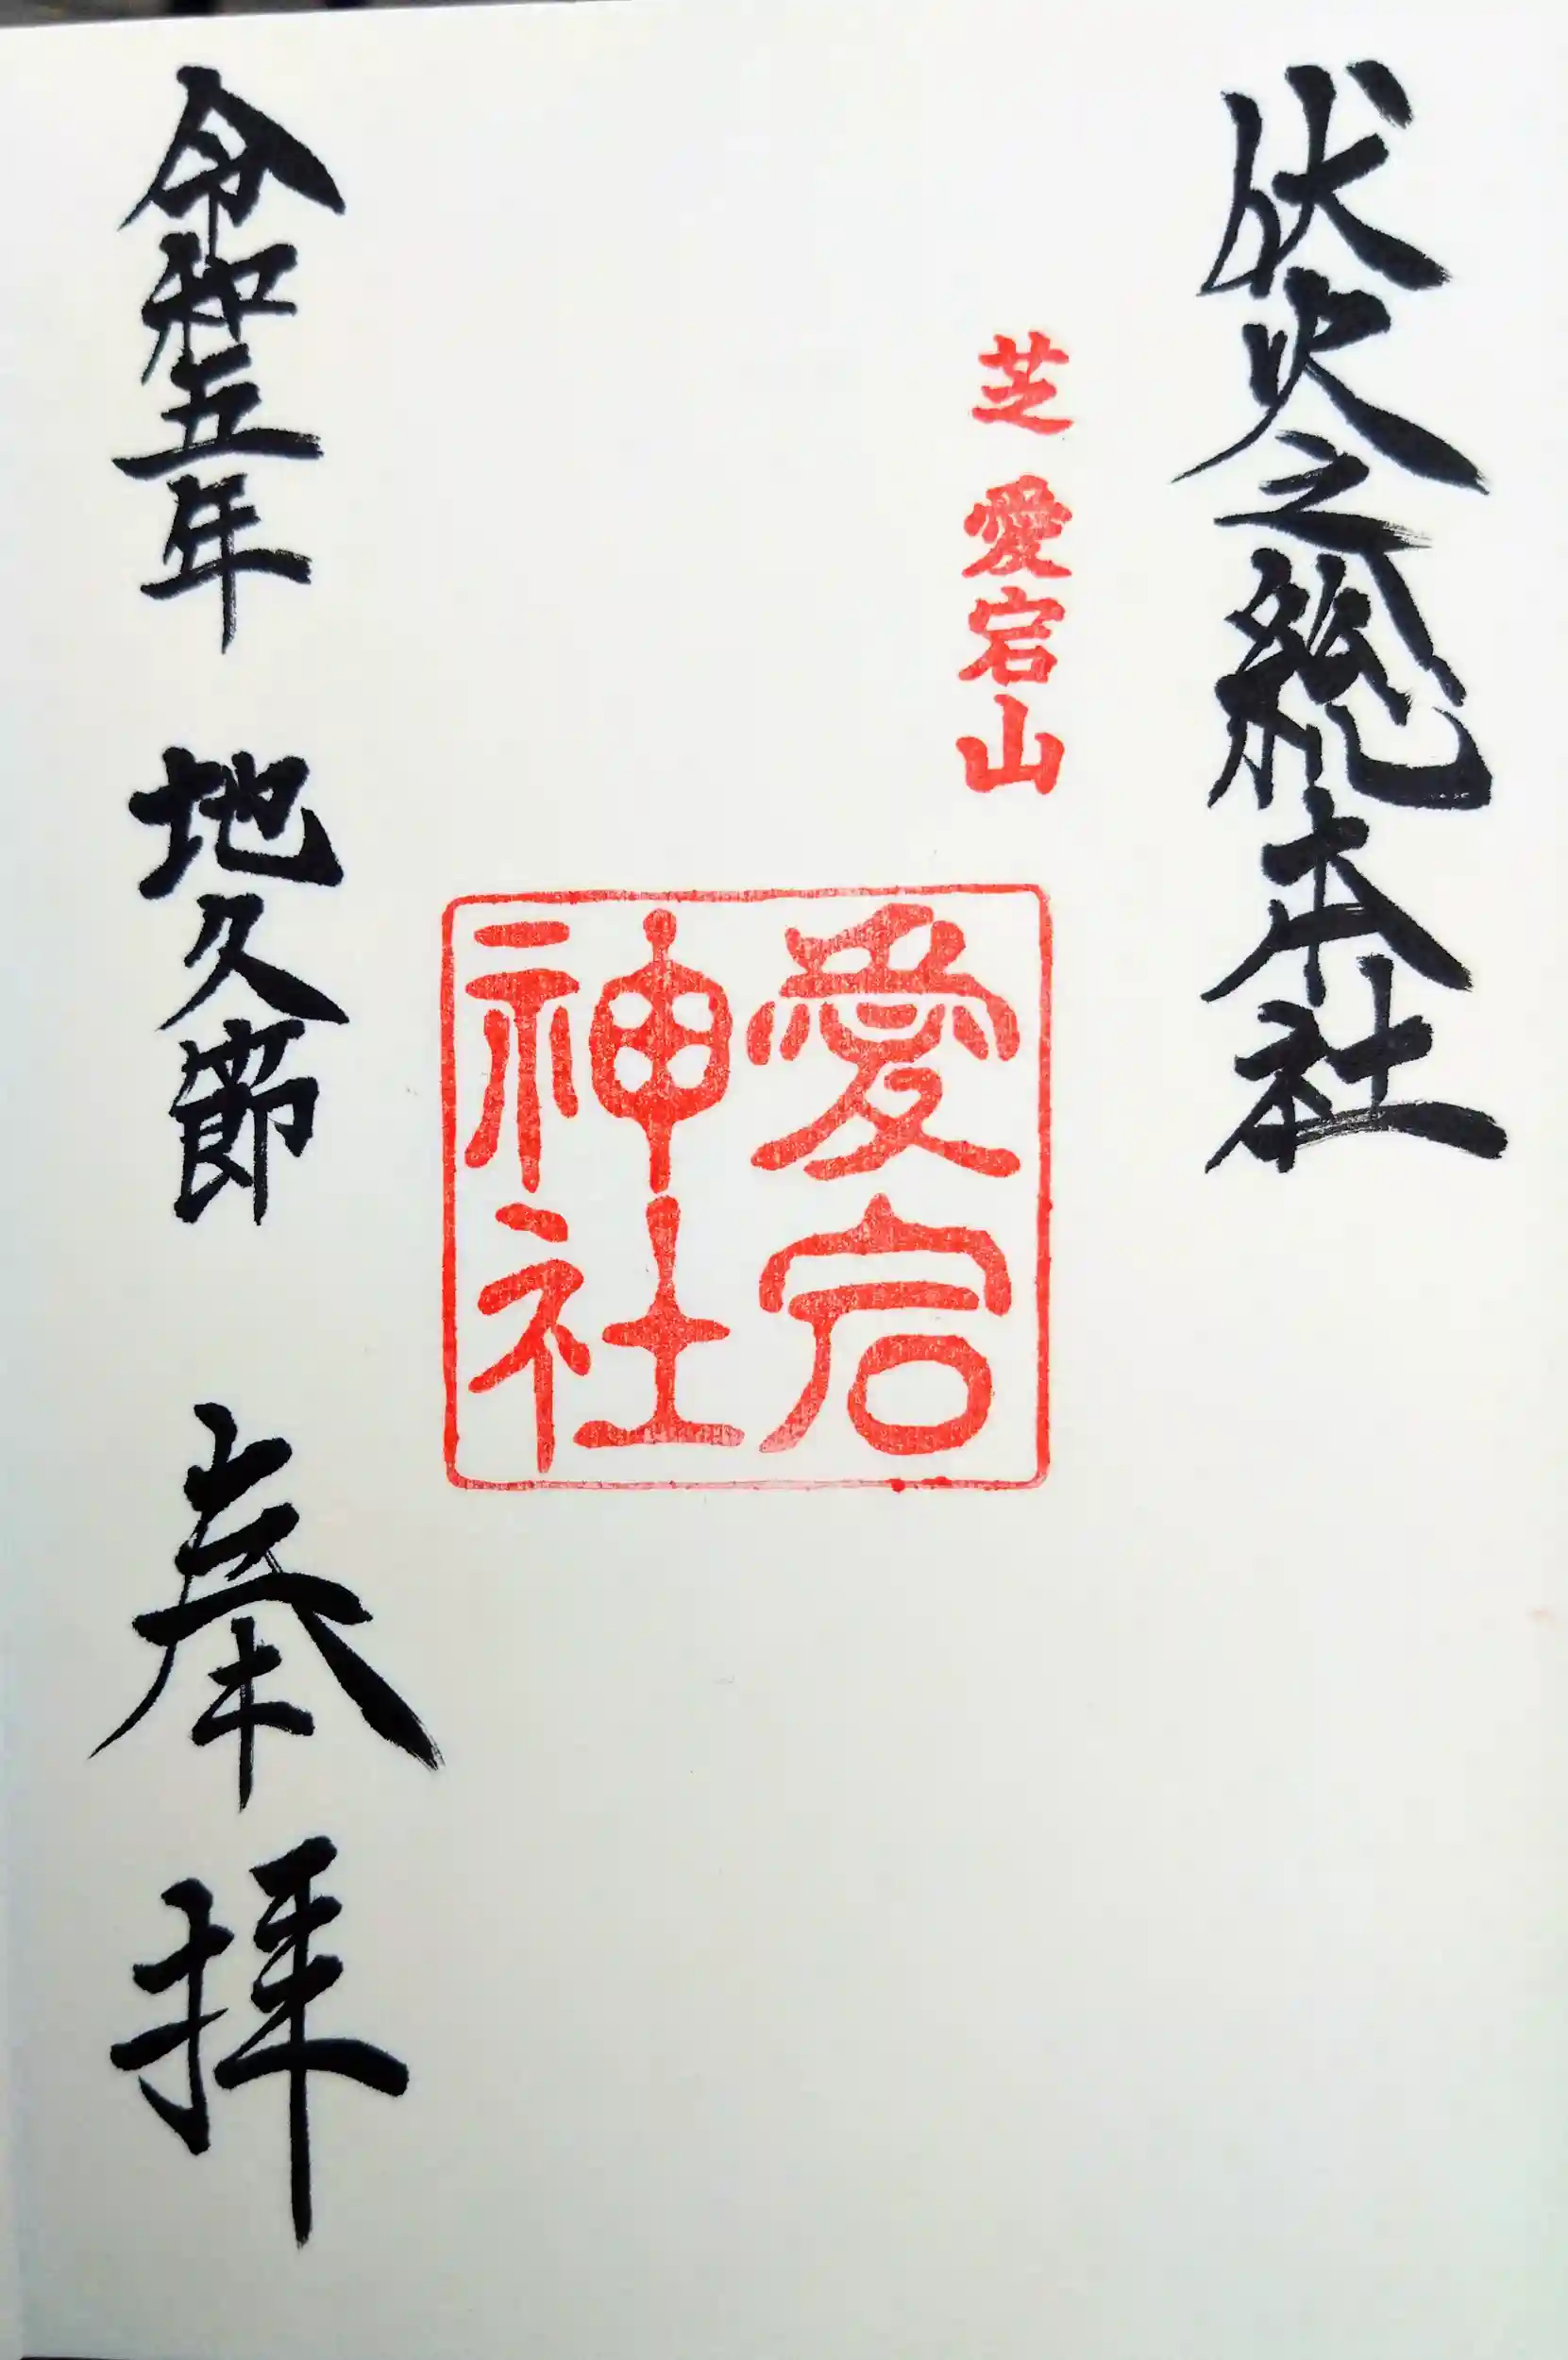 伏火之總本社
芝 愛宕山
愛宕
神社
令和五年 地久節 奉拝